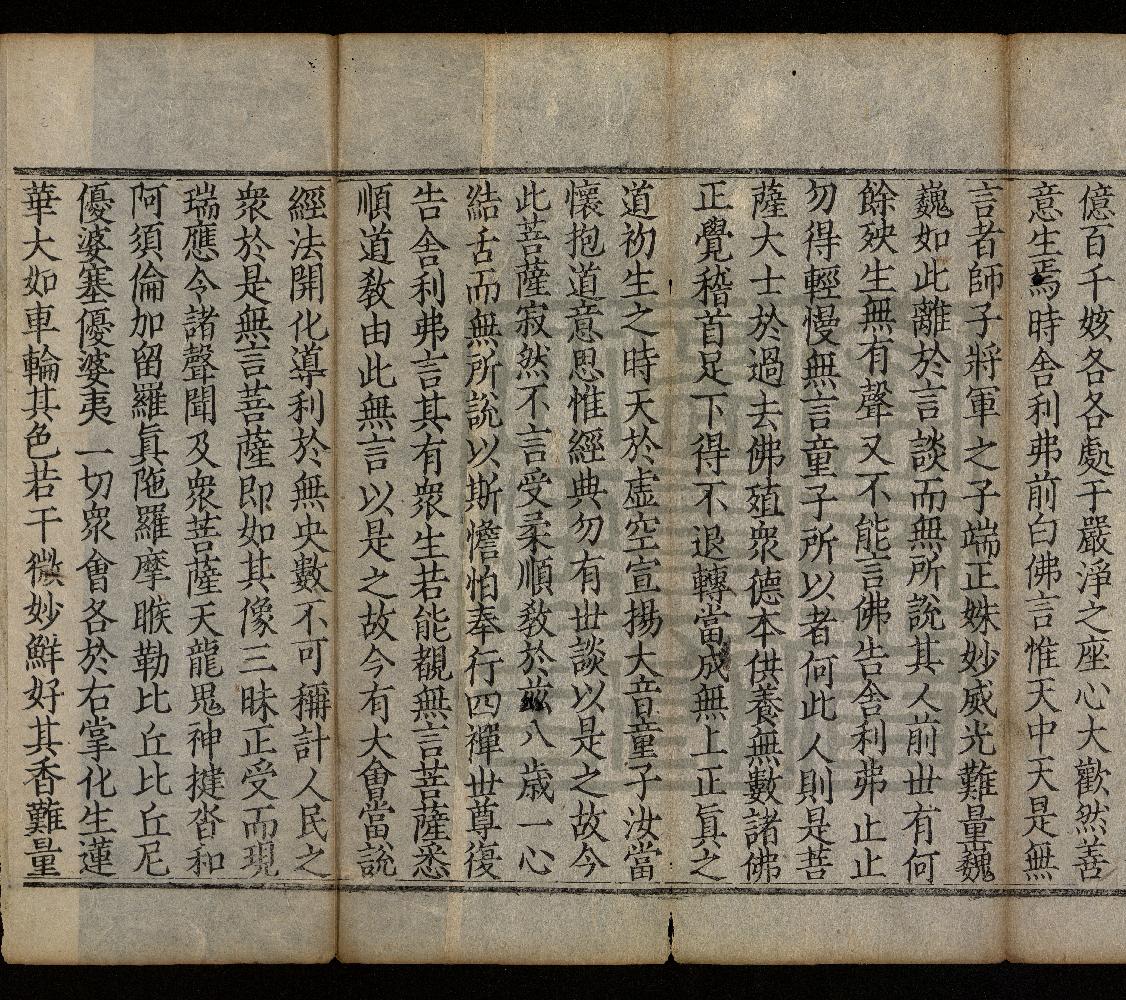 億百千姟各各處于嚴淨之座心大歡然善
意生焉時舍利弗前白佛言惟天中天是無
言者師子將軍之子端正姝妙威光難量巍
巍如此離於言談而無所說其人前世有何
餘殃生無有聲又不能言佛告舍利弗止止
勿得輕慢無言童子所以者何此人則是菩
薩大士於過去佛殖衆德本供養無數諸佛
正覺稽首足下得不退轉當成無上正真之
道初生之時天於虛空宣揚大音童子汝當
懷抱道意思惟經典勿有世談以是之故今
此菩薩寂然不言受柔順敎於茲八歲一心
結舌而無所說以斯憺怕奉行四禪世尊復
告舍利弗言其有衆生若能覩無言菩薩悉
順道敎由此無言以是之故今有大會當說
經法開化導利於無央數不可稱計人民之
衆於是無言菩薩即如其像三昧正受而現
瑞應令諸聲聞及衆菩薩天龍鬼神揵沓和
阿須倫加留羅真陁羅摩睺勒比丘比丘尼
優婆塞優婆夷一切衆會各於右掌化生蓮
華大如車輪其色若干微妙鮮好其香難量